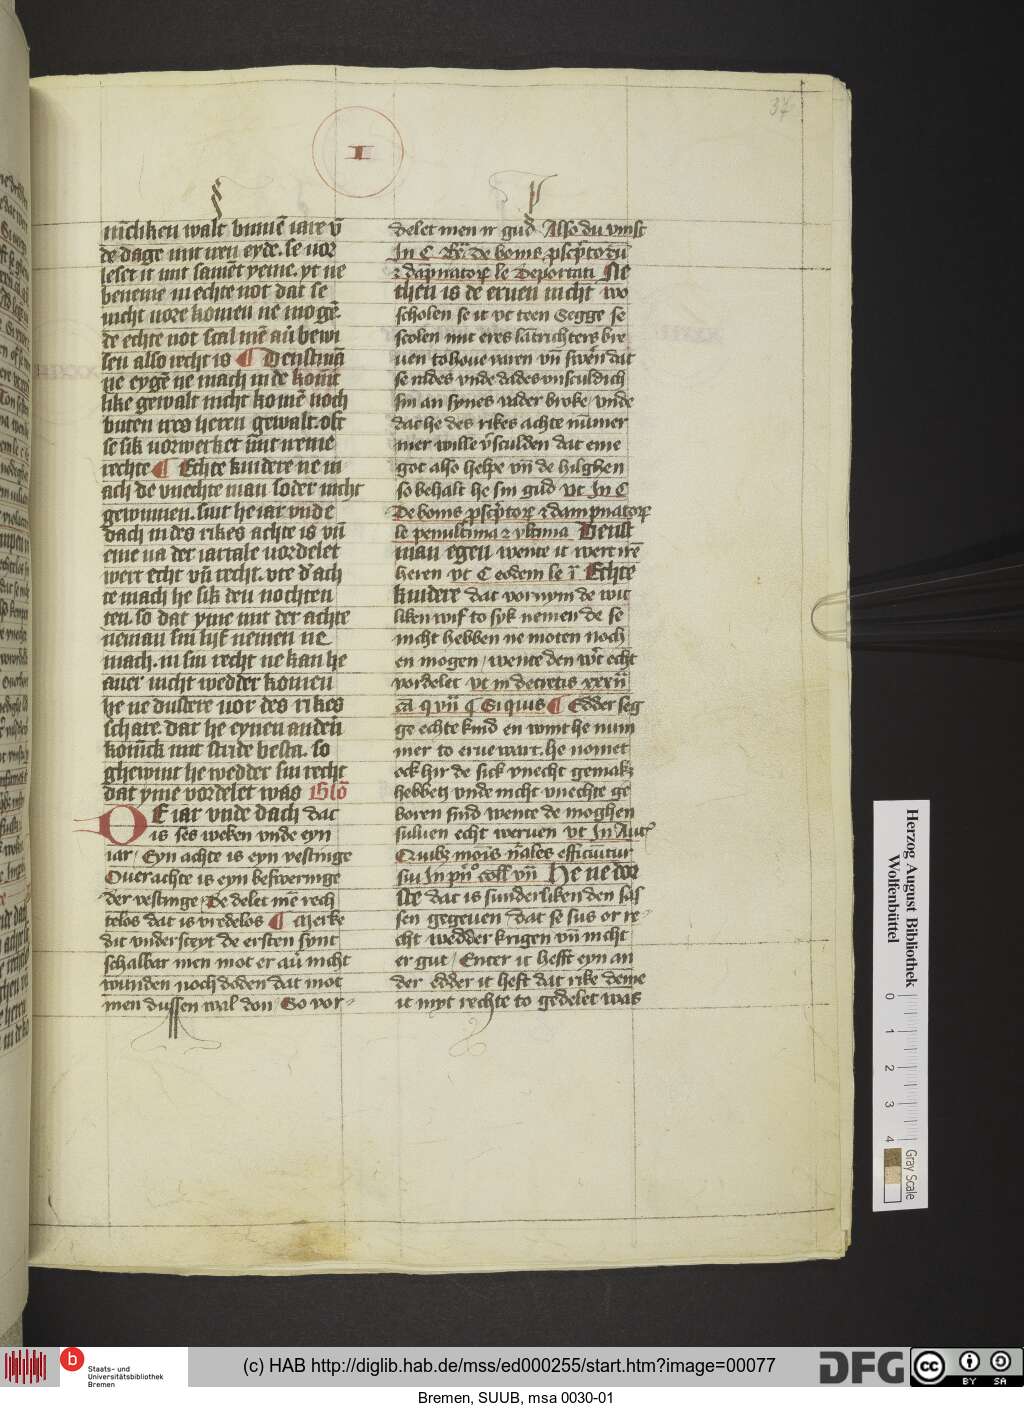 37
I
nūcliken walt binnē iare vn̄
de dage mit uen eyde. se uor
leset it mit samēt yeme. yt ne
beneme in echte not dat se
nicht uore komen ne mogē.
de echte not scal mē au̅ bewi
sen also recht is ¶ Dienstmā
ne eygē ne mach in de konīc
like gewalt nicht komē noch
buten ires heren gewalt. oft
se sik uorwerket mit ireme
rechte ¶ Echte kindere ne m
ach de vnechte man soder nicht
gewinnen. sint he iar vnde
dach in des rikes achte is vn̄
eme na der iartale uordelet
wert echt vn̄ recht. vte d' ach
te mach he sik den nochten
ten. so dat yme mit der achte
neman sin lijf nemen ne
mach. in sin recht ne kan he
auer nicht wedder komen
he ne dustere vor des rikes
schare. dar he eynen anderē
konīck mit stride besta. so
ghewint he wedder sin recht
dat yme vordelet was Glō
DE iar vnde dach dat
is ses weken vnde eyn
iar / Eyn achte is eyn vestinge
Ouerachte is eyn besweringe
der vestinge / De delet mē rech
telos dat is vredelos ¶ Merke
dit vndersceyt de ersten synt
schalbar men mot er au̅ nicht
wunden noch doden dat mot
men dussen wal don / So vor
delet men ir gud Also du vinst
In C Rē de bonis pscptorū
⁊ dāpnatorꝝ le Deportati Ne
then is de eruen nicht wo
scholen se it vt teen Segge se
scolen mit eres lātrichters bre
uen to houe varen vn̄ swerē dat
se nides vnde dades vnsculdich
sin an synes vader broke vnde
dat he des rikes achte nūmer
mer wille v̄sculden dat eme
got also helpe vn̄ de hilghen
so behalt he sin gud vt In C
De bonis pscptorꝝ ⁊ dampnatorꝝ
le penultima ⁊ vltima Denst
man egen wente it wert irē
heren vt C eodem le ī Echte
kindere dat vornym de wit
liken wif to syk nemen de se
nicht hebben ne moten noch
en mogen / wente den wt̄ echt
vordelet vt in decretis xxxij
cā q vij q Si quis ¶ Edder seg
ge echte kind en wint he num
mer to erue wart. he nomet
ock hir de sick vnecht gemakꝫ
hebben vnde nicht vnechte ge
boren sind wente de moghen
siluen echt weruen vt In Aut'
Quibꝫ mois nāles efficiūtur
sui In pn° coll vij He ne dor
ste dat is sunderliken den sas
sen gegeuen dat se sus or re
cht wedder krigen vn̄ nicht
er gut / Enter it hefft eyn an
der edder it heft dat rike deme
it myt rechte to gedelet was
Herzog August Bibliothek
Wolfenbüttel
0 1 2 3 4
Gray Scale
b Staats- und
Universitätsbibliothek
Bremen
(c) HAB http://diglib.hab.de/mss/ed000255/start.htm?image=00077
DFG
cc BY SA
Bremen, SUUB, msa 0030-01